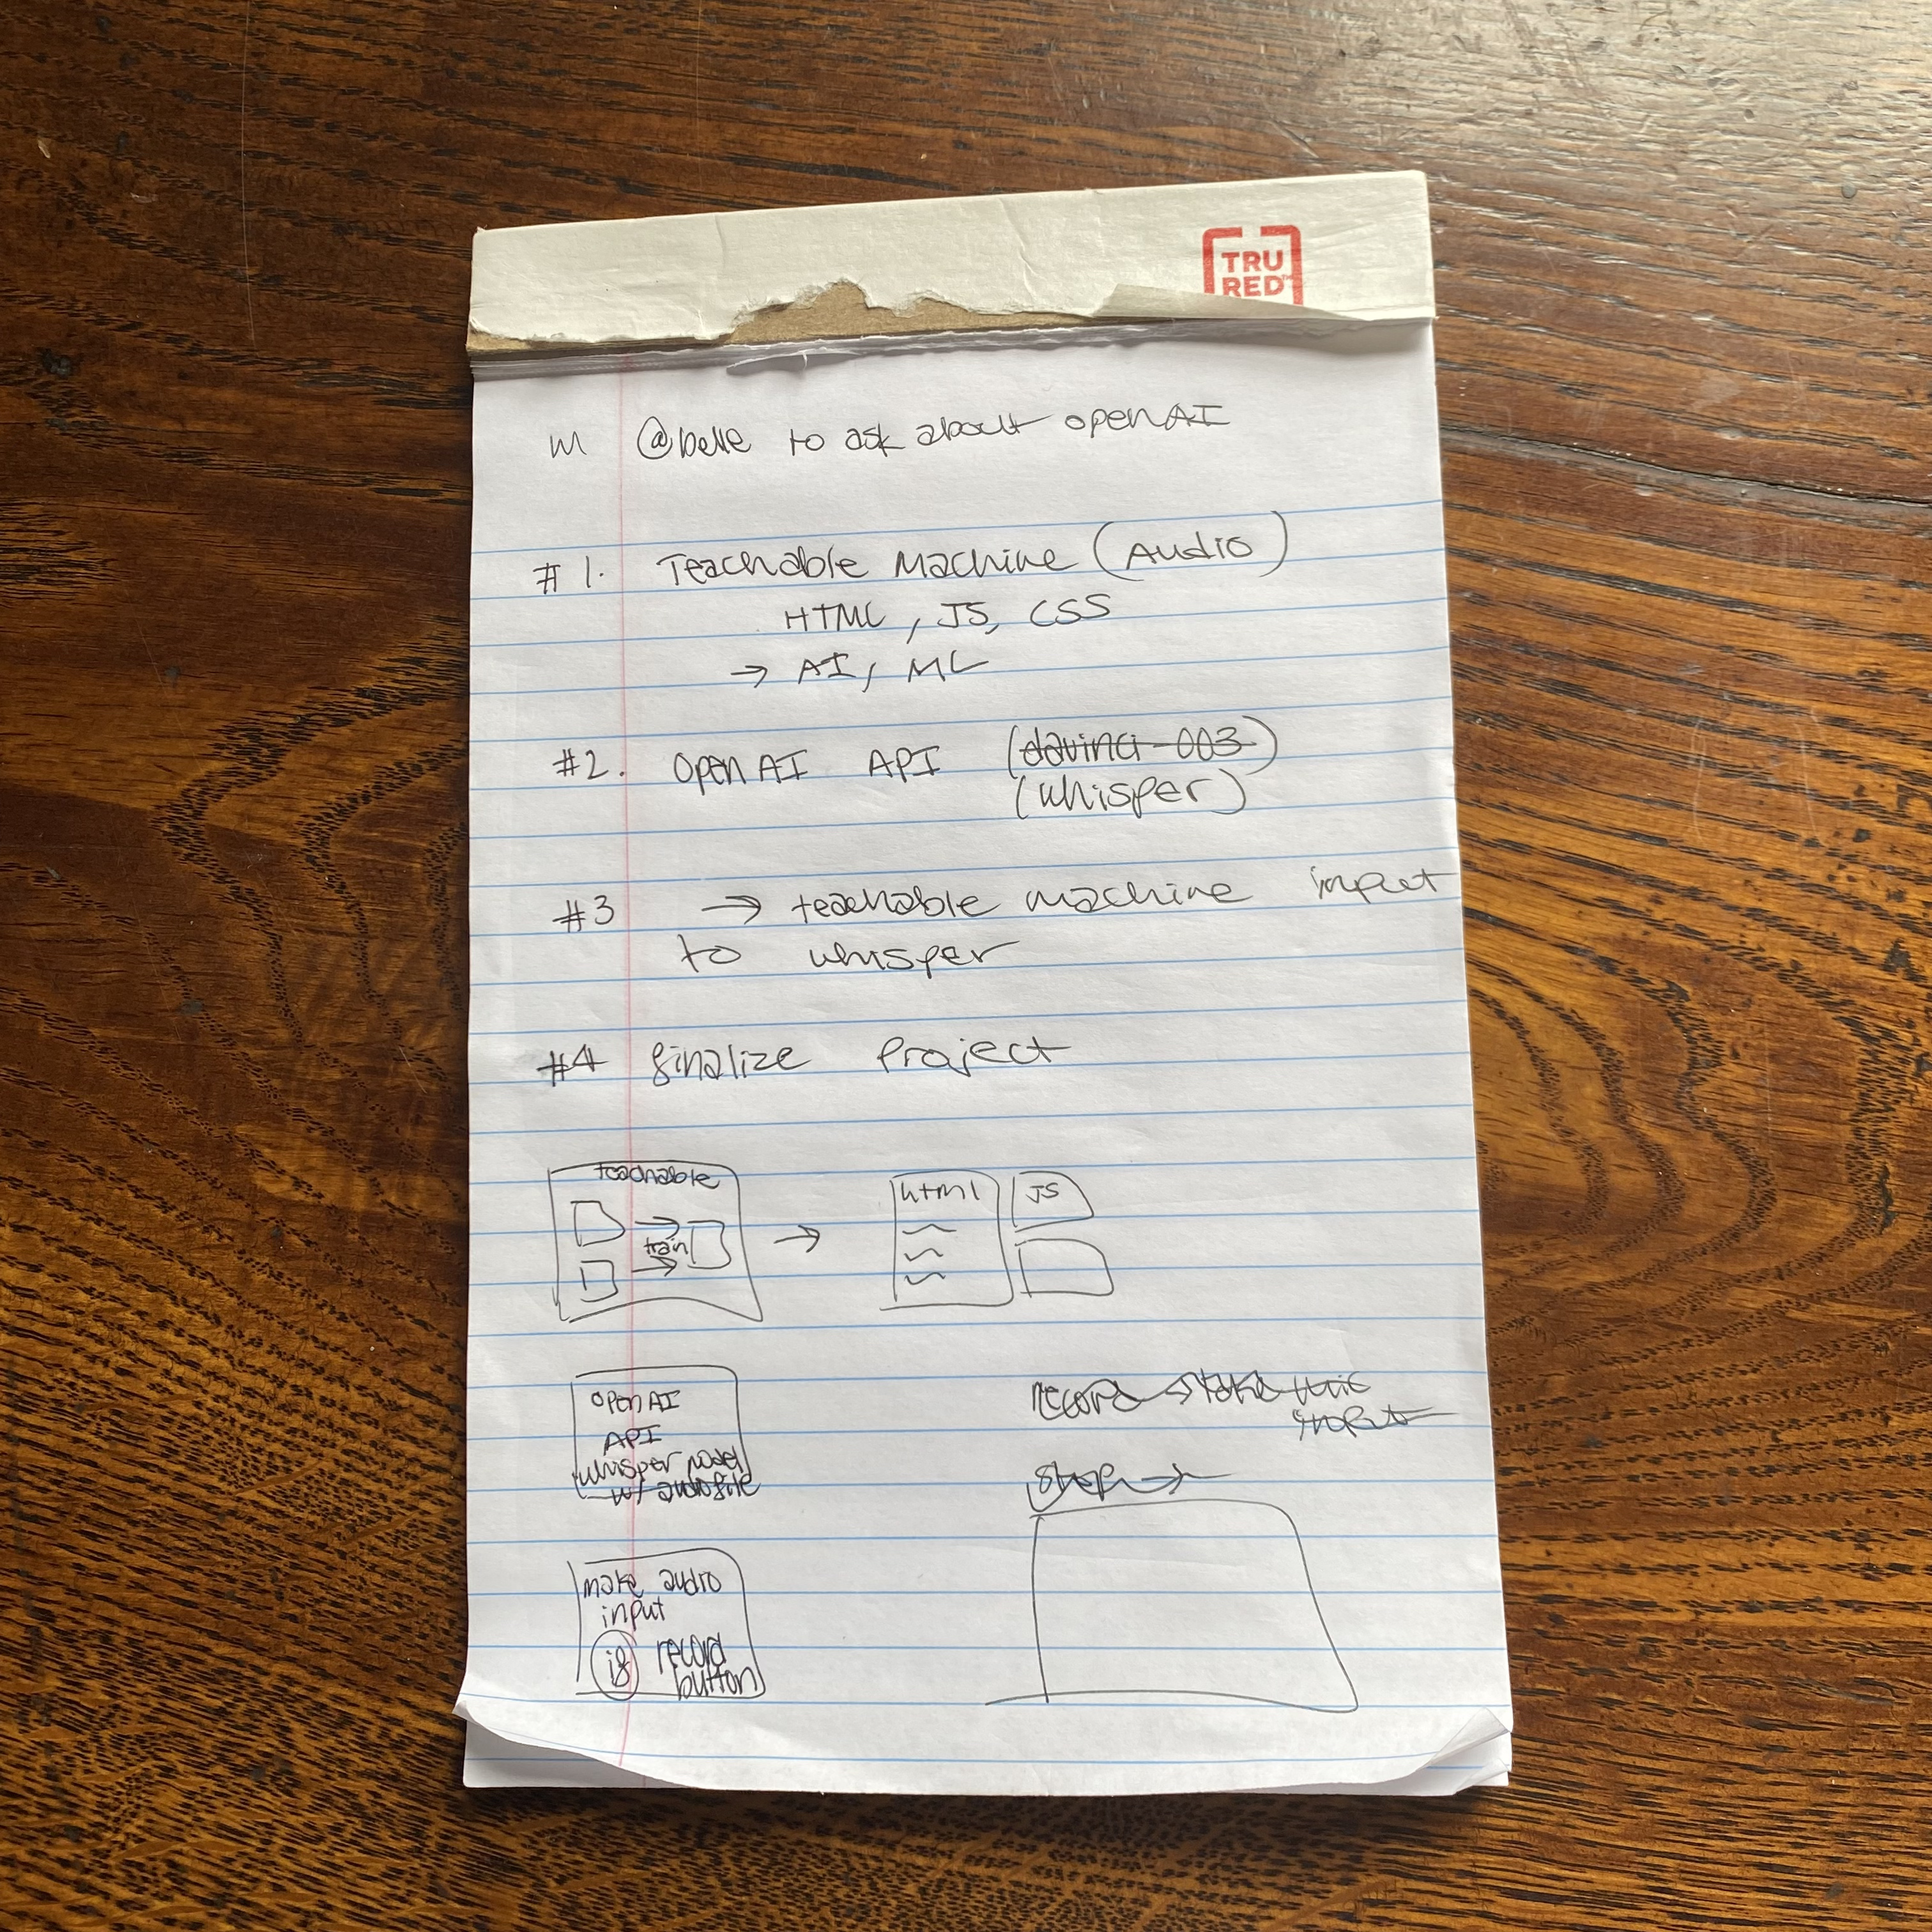 TRU
RED™
M @belle to ask about openAI
#1. Teachable Machine (Audio)
HTML, JS, CSS
→ AI, ML
#2. OpenAI API (davinci-003)
(whisper)
#3 → teachable machine input
to whisper
#4 finalize project
teachable
train
→
html
JS
OpenAI
API
whisper model
w/ audio file
record → take this
input
Stop →
make audio
input
record
button